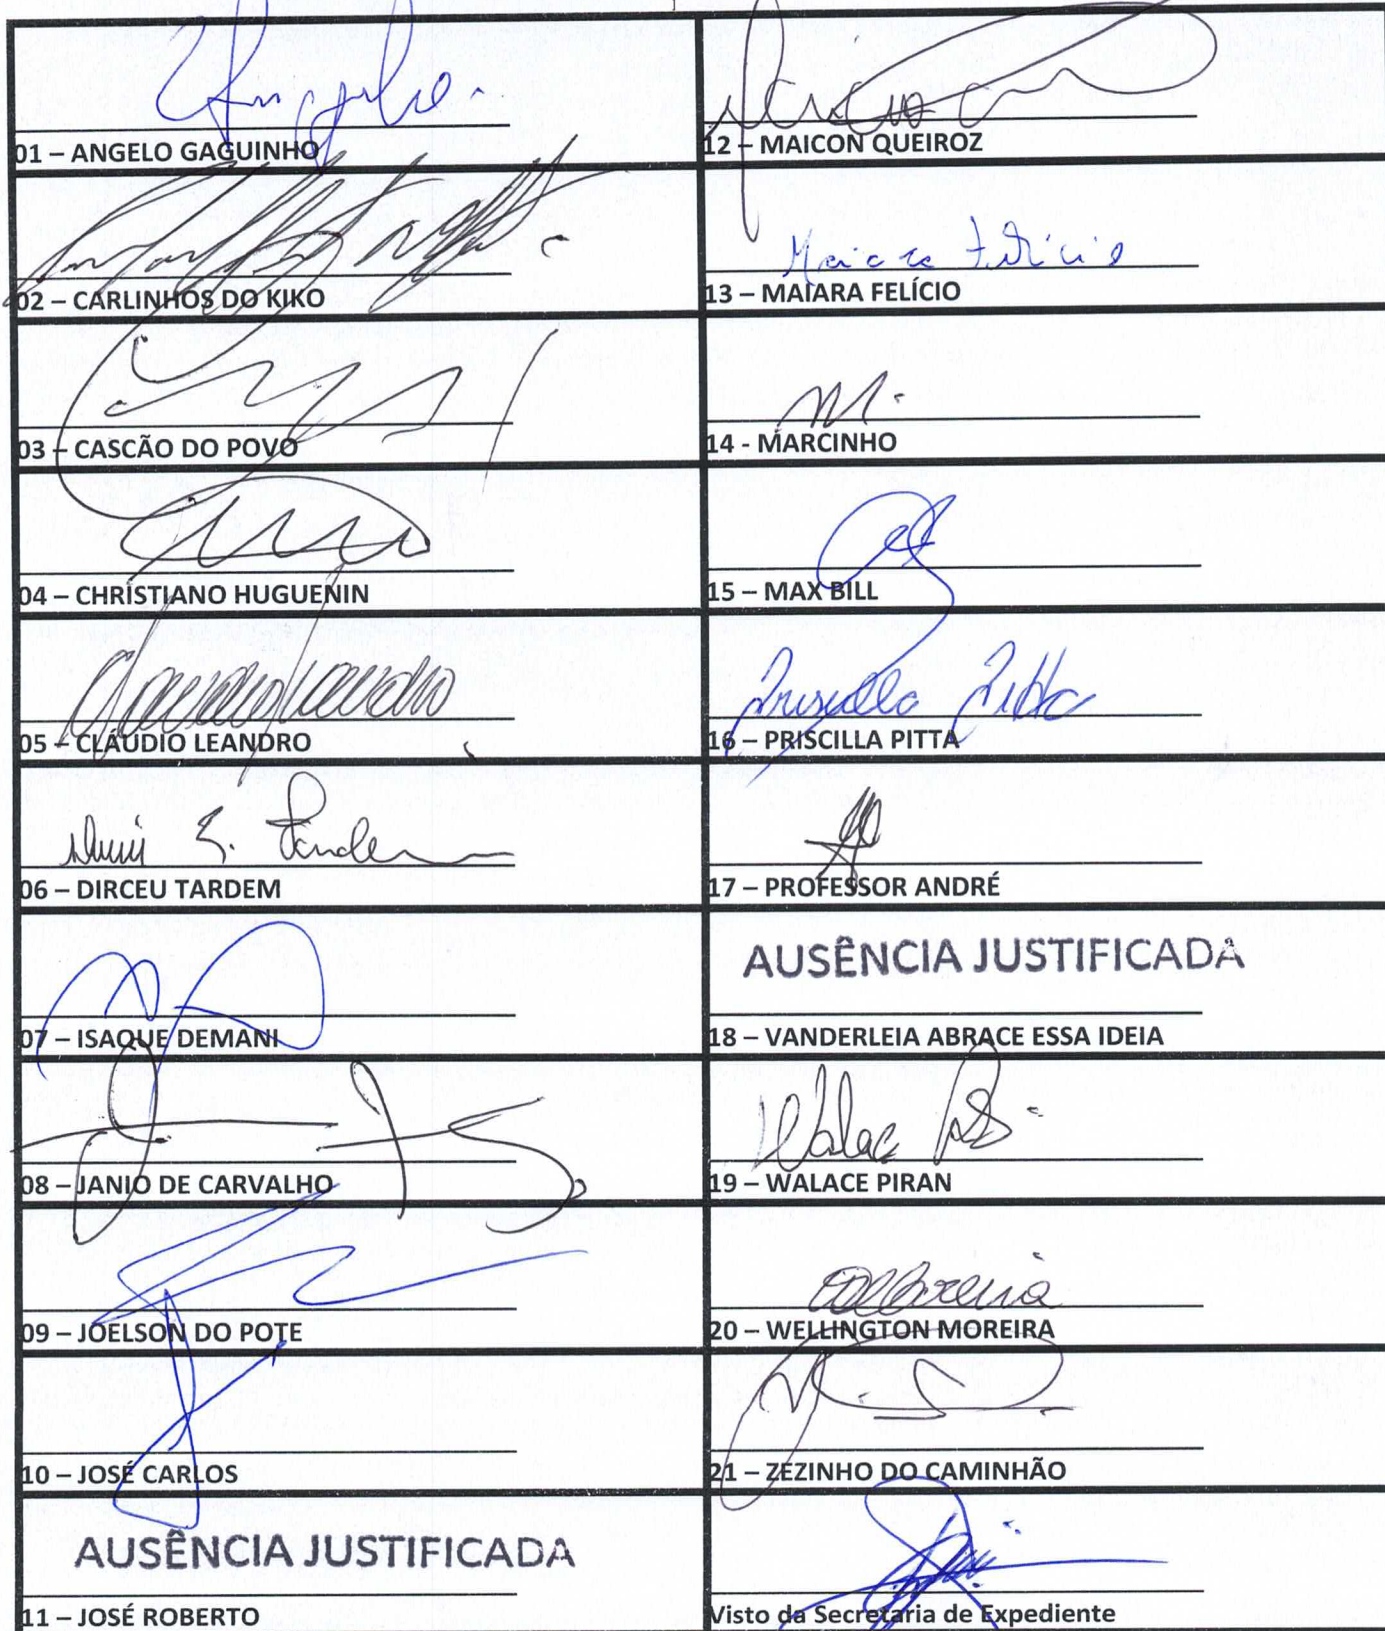 01 – ANGELO GAGUINHO
02 – CARLINHOS DO KIKO
03 – CASCÃO DO POVO
04 – CHRISTIANO HUGUENIN
Claudio Leandro
05 – CLÁUDIO LEANDRO
06 – DIRCEU TARDEM
07 – ISAQUE DEMANI
08 – JANIO DE CARVALHO
09 – JOELSON DO POTE
10 – JOSÉ CARLOS
AUSÊNCIA JUSTIFICADA
11 – JOSÉ ROBERTO
12 – MAICON QUEIROZ
Maiara Felício
13 – MAIARA FELÍCIO
14 - MARCINHO
15 – MAX BILL
Priscilla Pitta
16 – PRISCILLA PITTA
17 – PROFESSOR ANDRÉ
AUSÊNCIA JUSTIFICADA
18 – VANDERLEIA ABRACE ESSA IDEIA
19 – WALACE PIRAN
20 – WELLINGTON MOREIRA
21 – ZEZINHO DO CAMINHÃO
Visto da Secretaria de Expediente